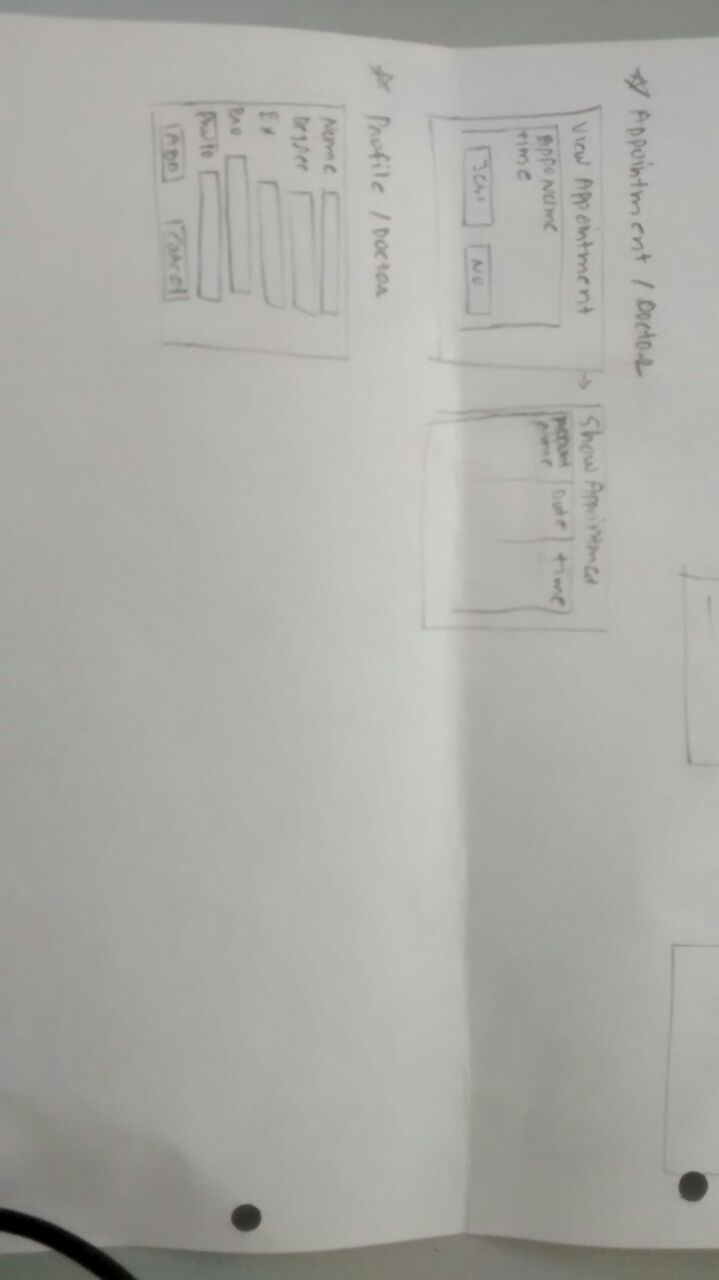 Appointment / Doctor
View Appointment
Appo Name
time
No
Show Appointment
name | Date | time
Profile / Doctor
Name
Degree
Ex
Bio
Photo
Add
Cancel